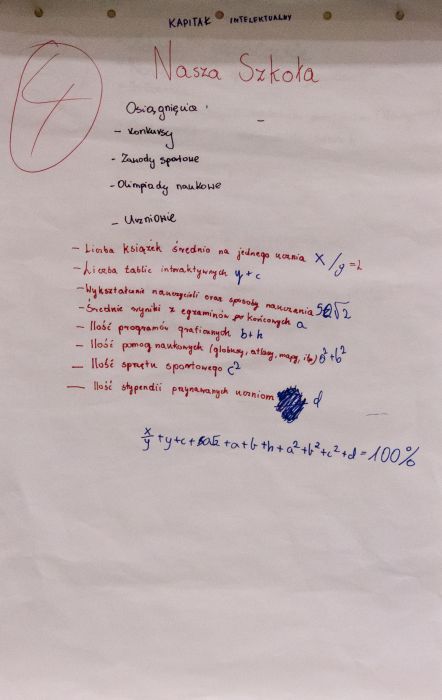 KAPITAŁ INTELEKTUALNY
4
Nasza Szkoła
Osiągnięcia:
- Konkursy
- Zawody sportowe
- Olimpiady naukowe
- Uczniowie
- Liczba książek średnio na jednego ucznia x/y = L
- Liczba tablic interaktywnych y + c
- Wykształcenie nauczycieli oraz sposoby nauczania √2
- Średnie wyniki z egzaminów końcowych a
- Ilość programów graficznych b+h
- Ilość pomocy naukowych (globusy, atlasy, mapy, itp) + b²
- Ilość sprzętu sportowego c²
- Ilość stypendii przyznawanych uczniom d
x/y + y + c + √2 + a + b + h + a² + b² + c² + d = 100%